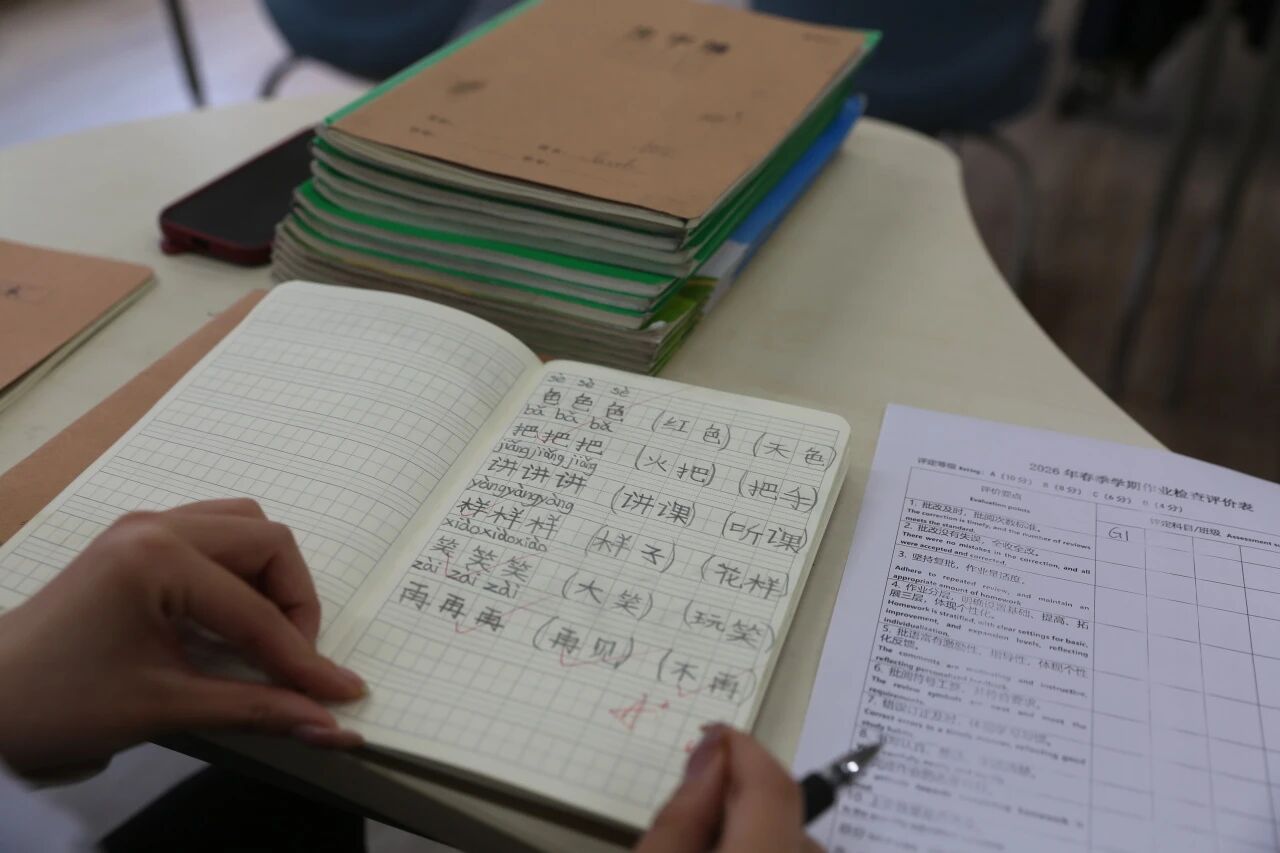 生字簿
sè sè sè
色 色 色 (红色) (天色)
bǎ bǎ bǎ
把 把 把 (火把) (把手)
jiǎng jiǎng jiǎng
讲 讲 讲 (讲课) (听课)
yàng yàng yàng
样 样 样 (样子) (花样)
xiào xiào xiào
笑 笑 笑 (大笑) (玩笑)
zài zài zài
再 再 再 (再见) (不再)
2026 年春季学期作业检查评价表
评定等级 Rating: A（10 分） B（8 分） C（6 分） D（4 分）
评价要点
Evaluation points
评定科目/班级 Assessment
G1
1. 批改及时，批阅次数标准。
The correction is timely, and the number of reviews
meets the standard.
2. 批改没有失误，全收全改。
There were no mistakes in the correction, and all
were accepted and corrected.
3. 坚持复批，作业量适度。
Adhere to repeated review, and maintain an
appropriate amount of homework
4. 作业分层，明确设置基础、提高、拓
展三层，体现个性化。
Homework is stratified, with clear settings for basic,
improvement, and expansion levels, reflecting
individualization.
5. 批语富有激励性、指导性，体现个性
化反馈。
The comments are motivating and instructive,
reflecting personalized feedback.
6. 批阅符号工整，并符合要求。
The review symbols are neat and meet the
requirements.
7. 错误订正及时，体现学习习惯。
Correct errors in a timely manner, reflecting good
study habits.
8.
10.